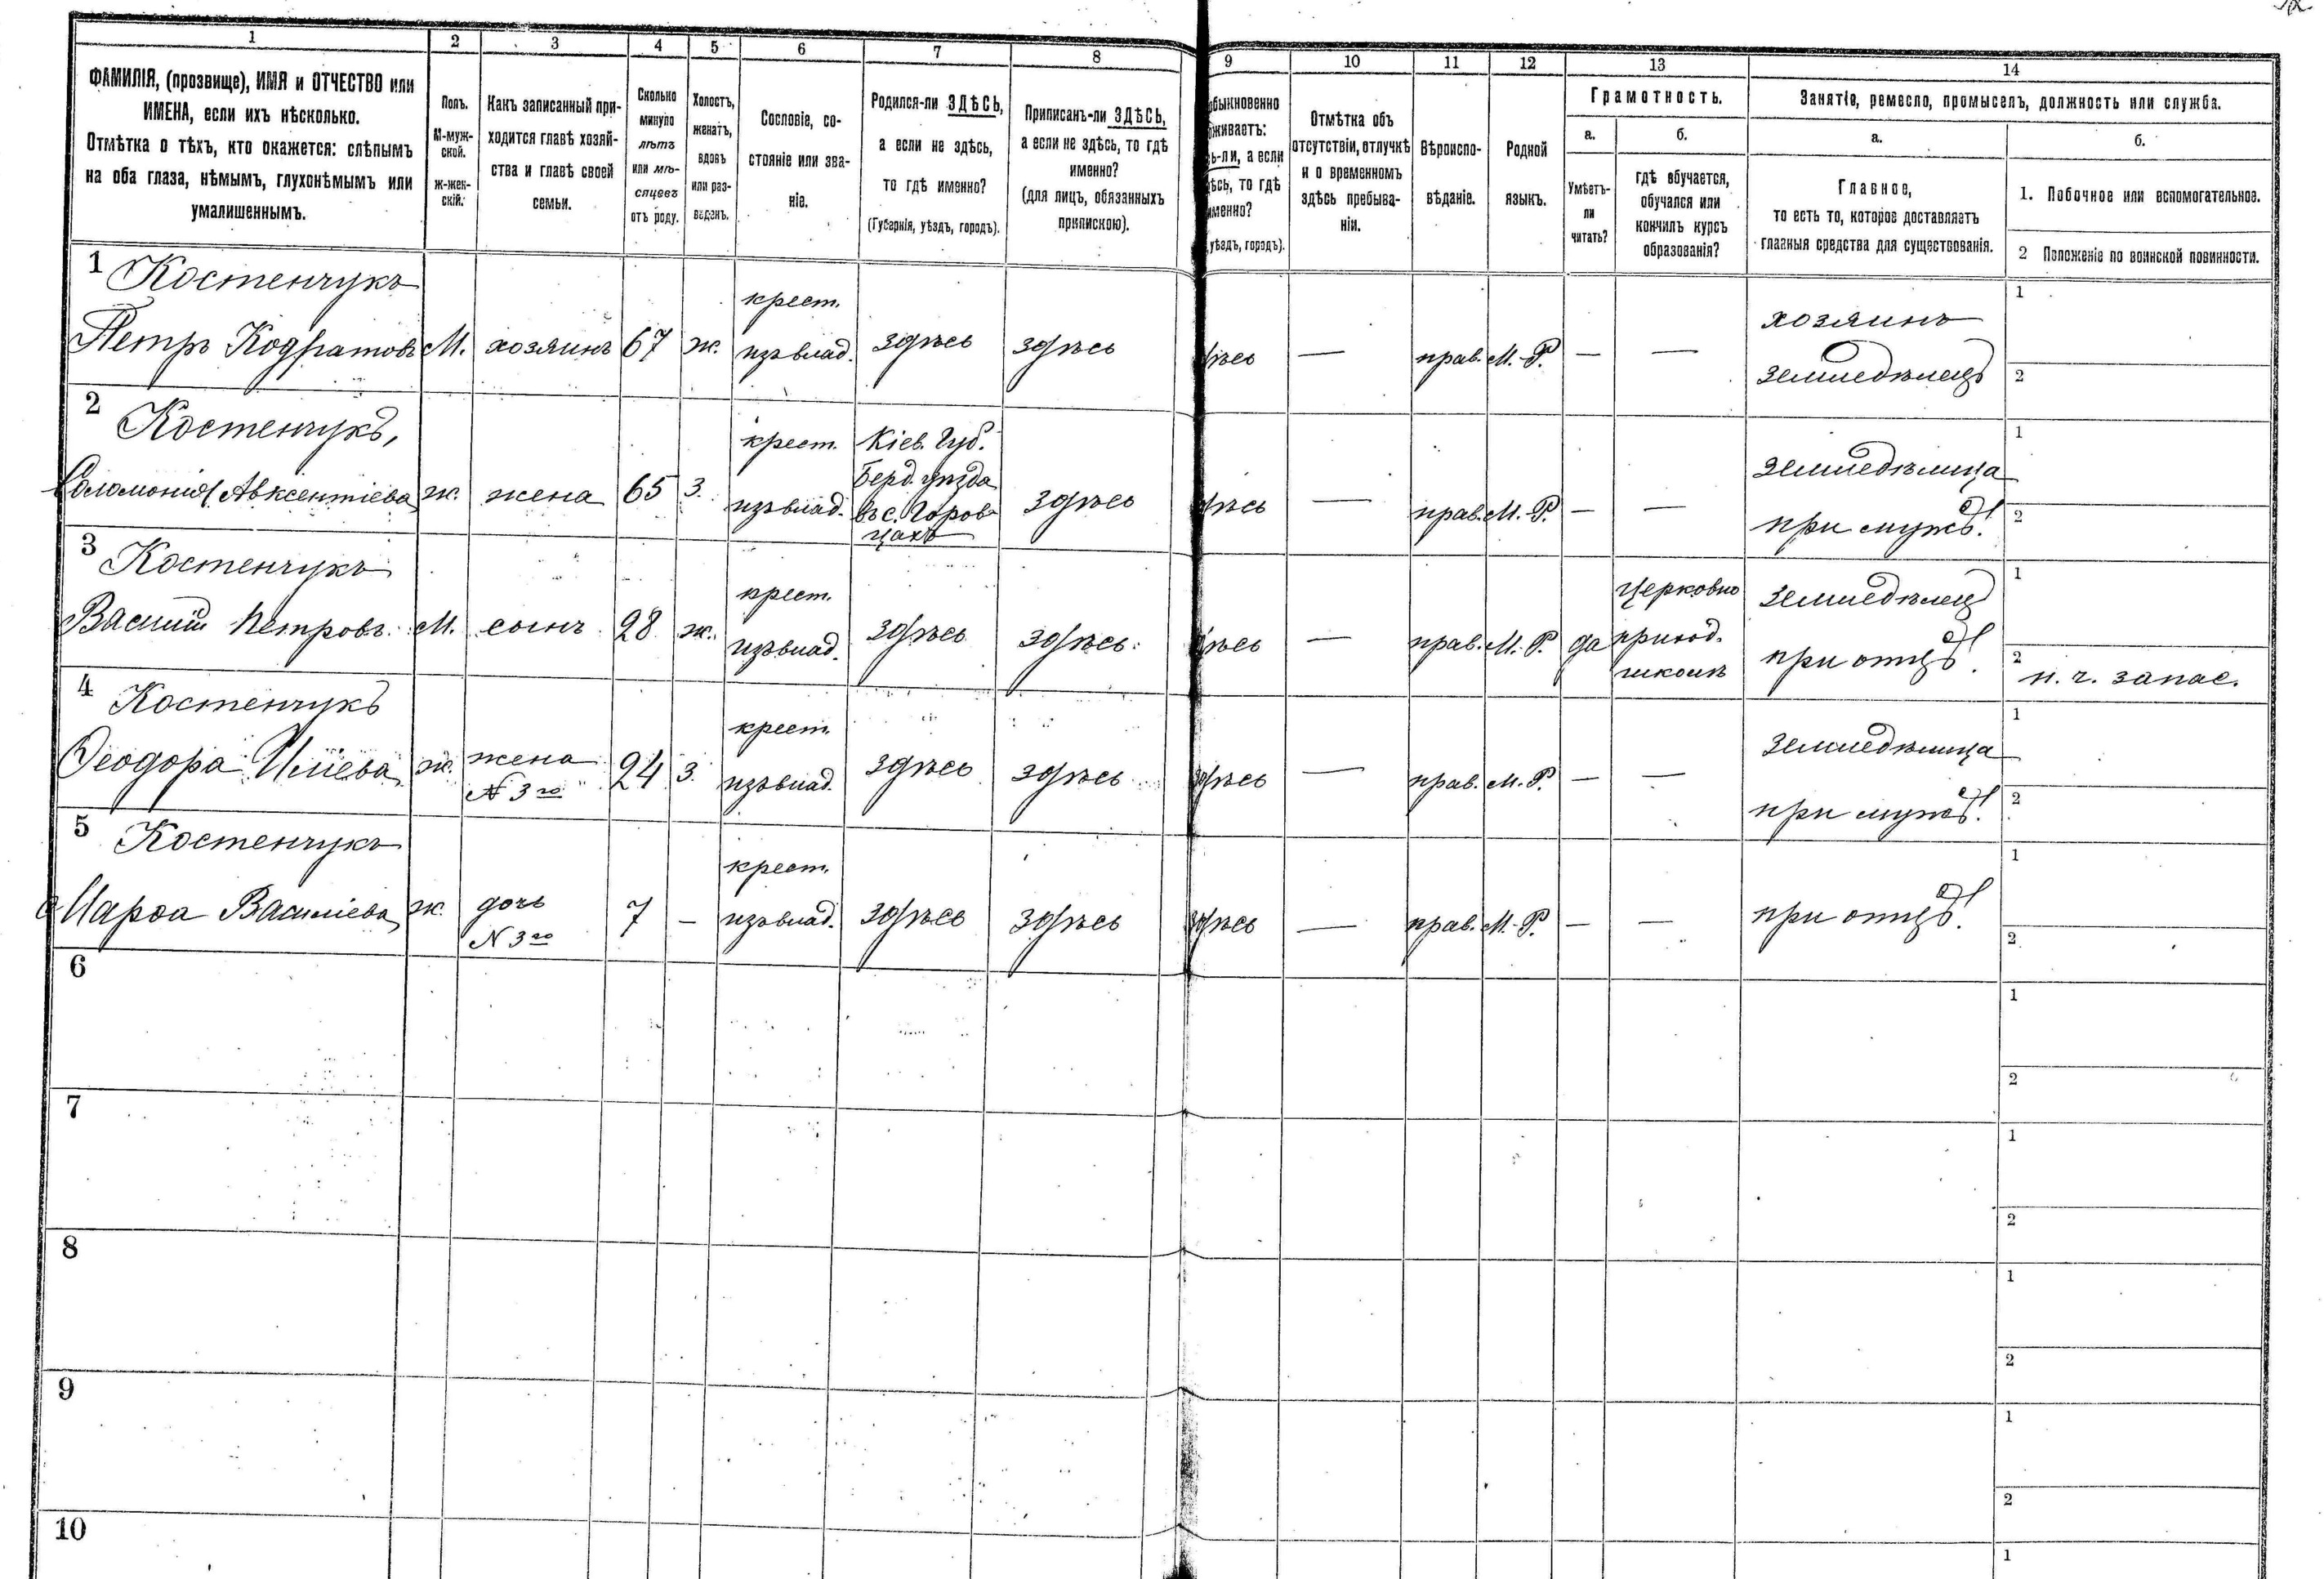 1 2 3 4 5 6 7 8 9 10 11 12 13 14
ФАМИЛІЯ, (прозвище), ИМЯ и ОТЧЕСТВО или
ИМЕНА, если ихъ нѣсколько.
Отмѣтка о тѣхъ, кто окажется: слѣпымъ
на оба глаза, нѣмымъ, глухонѣмымъ или
умалишеннымъ.
Полъ.
М-муж-
ской.
ж-жен-
скій.
Какъ записанный при-
ходится главѣ хозяй-
ства и главѣ своей
семьи.
Сколько
минуло
лѣтъ
или мѣ-
сяцевъ
отъ роду.
Холостъ,
женатъ,
вдовъ
или раз-
веденъ.
Сословіе, со-
стояніе или зва-
ніе.
Родился-ли ЗДѢСЬ,
а если не здѣсь,
то гдѣ именно?
(Губернія, уѣздъ, городъ).
Приписанъ-ли ЗДѢСЬ,
а если не здѣсь, то гдѣ
именно?
(для лицъ, обязанныхъ
припискою).
быкновенно
живаетъ:
ь-ли, а если
ѣсь, то гдѣ
именно?
уѣздъ, городъ).
Отмѣтка объ
отсутствіи, отлучкѣ
и о временномъ
здѣсь пребыва-
ніи.
Вѣроиспо-
вѣданіе.
Родной
языкъ.
Грамотность.
а.
Умѣетъ-
ли
читать?
б.
гдѣ обучается,
обучался или
кончилъ курсъ
образованія?
Занятіе, ремесло, промыселъ, должность или служба.
а.
Главное,
то есть то, которое доставляетъ
главныя средства для существованія.
б.
1. Побочное или вспомогательное.
2 Положеніе по воинской повинности.
1 Костенчукъ
Петръ Кодратовъ М. хозяинъ 67 ж. крест. изъ влад. здѣсь здѣсь ѣсь — прав. М.-Р. — — хозяинъ
земледѣлецъ
1
2
2 Костенчукъ,
Соломонія Авксентіева ж. жена 65 з. крест. изъ влад. Кіев. Губ.
Берд. уѣзда
въ с. Горов-
цахъ
здѣсь ѣсь — прав. М.-Р. — — земледѣлица
при мужѣ.
1
2
3 Костенчукъ
Василій Петровъ. М. сынъ 28 ж. крест. изъ влад. здѣсь здѣсь. ѣсь — прав. М.-Р. да церковно
приход.
школѣ
земледѣлец
при отцѣ.
1
2 н. ч. запас.
4 Костенчукъ
Ѳеодора Иліева ж. жена
N 3го
24 з. крест. изъ влад. здѣсь здѣсь здѣсь — прав. М.-Р. — — земледѣлица
при мужѣ.
1
2
5 Костенчукъ
Марѳа Василіева ж. дочь
N 3го
7 — крест. изъ влад. здѣсь здѣсь здѣсь — прав. М.-Р. — — при отцѣ.
1
2
6
1
2
7
1
2
8
1
2
9
1
2
10
1